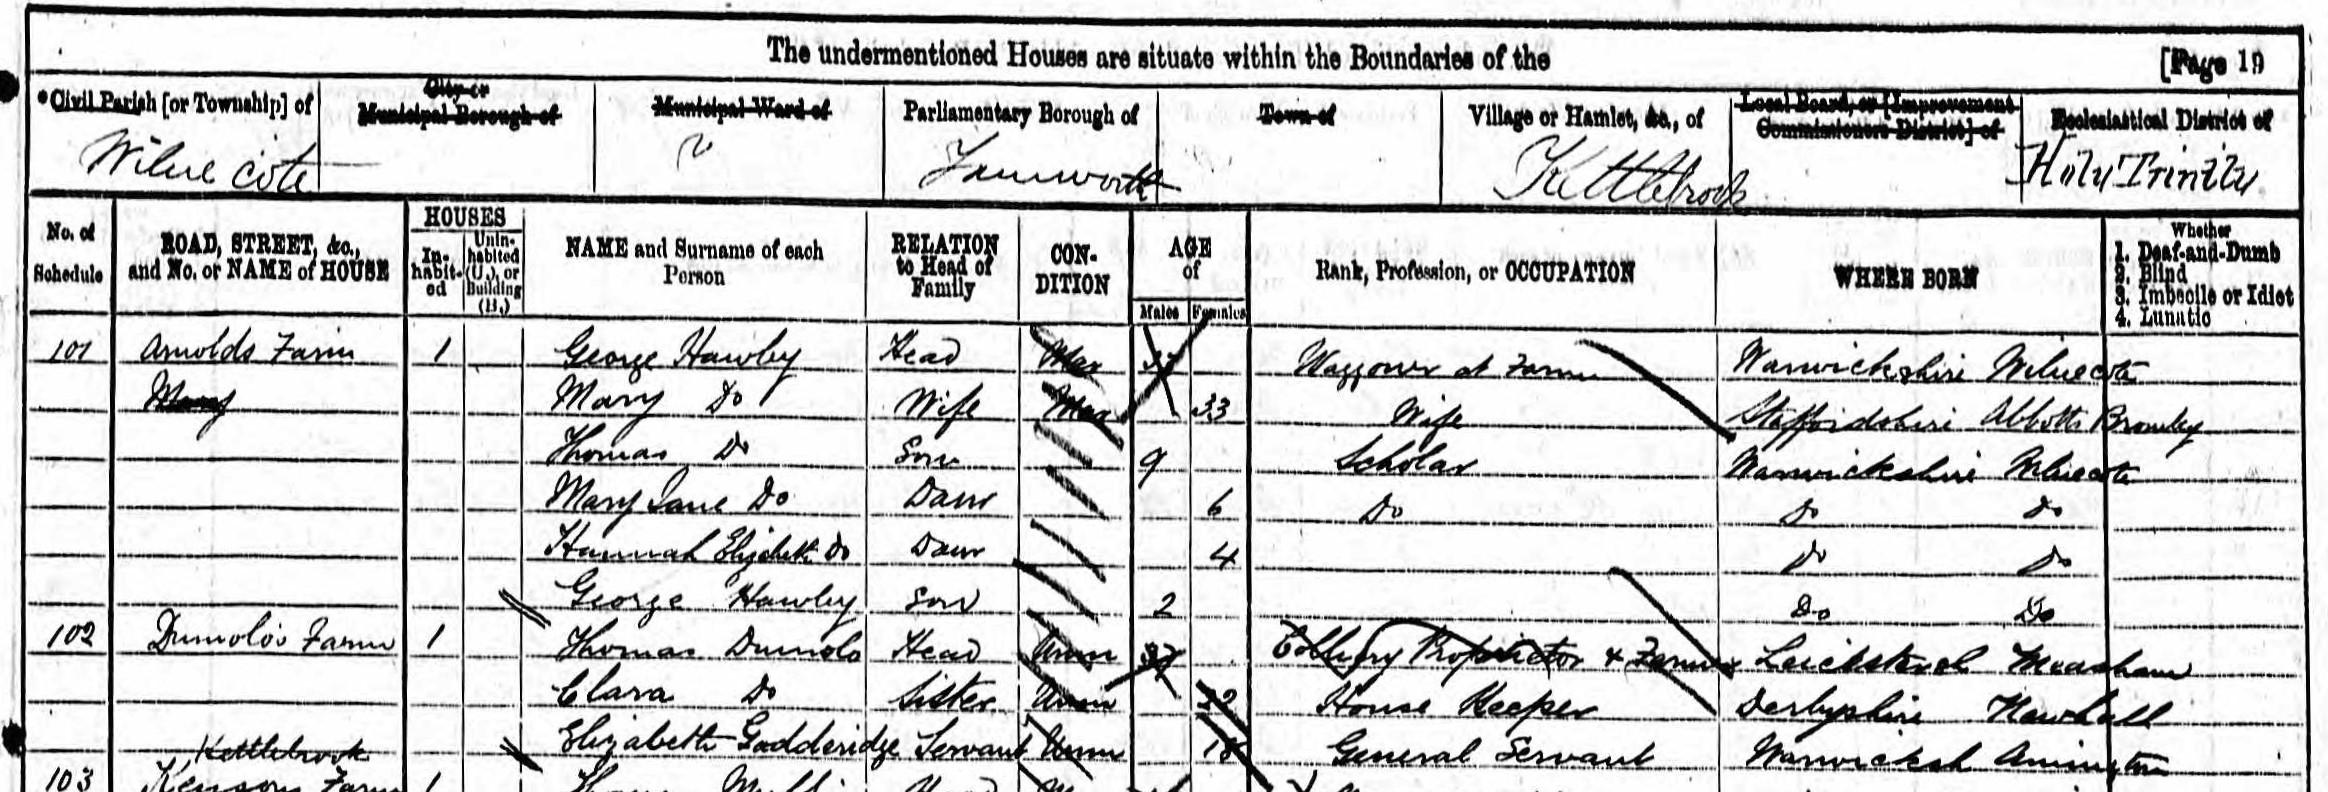 The undermentioned Houses are situate within the Boundaries of the [Page 19
*Civil Parish [or Township] of City or Municipal Borough of Municipal Ward of Parliamentary Borough of Town of Village or Hamlet, &c., of Local Board, or [Improvement Commissioners District] of Ecclesiastical District of
Wilnecote Tamworth Kettlebrook Holy Trinity
No. of Schedule ROAD, STREET, &c., and No. or NAME of HOUSE HOUSES In-habit-ed Unin-habited (U.), or Building (B.) NAME and Surname of each Person RELATION to Head of Family CON-DITION AGE of Males Females Rank, Profession, or OCCUPATION WHERE BORN Whether 1. Deaf-and-Dumb 2. Blind 3. Imbecile or Idiot 4. Lunatic
101 Arnolds Farm 1 George Hawley Head Mar Waggoner at Farm Warwickshire Wilnecote
Mary Mary Do Wife Mar 33 Wife Staffordshire Abbotts Bromley
Thomas Do Son 9 Scholar Warwickshire Wilnecote
Mary Jane Do Daur 6 Do Do Do
Hannah Elizabeth Do Daur 4 Do Do
George Hawley Son 2 Do Do
102 Dumolos Farm 1 Thomas Dumolo Head Unm 37 Colliery Proprietor & Farmer Measham
Clara Do Sister Unm 22 House Keeper Derbyshire Newhall
Elizabeth Godderidge Servant Unm 18 General Servant Warwicksh Amington
Kettlebrook
103 Farm 1